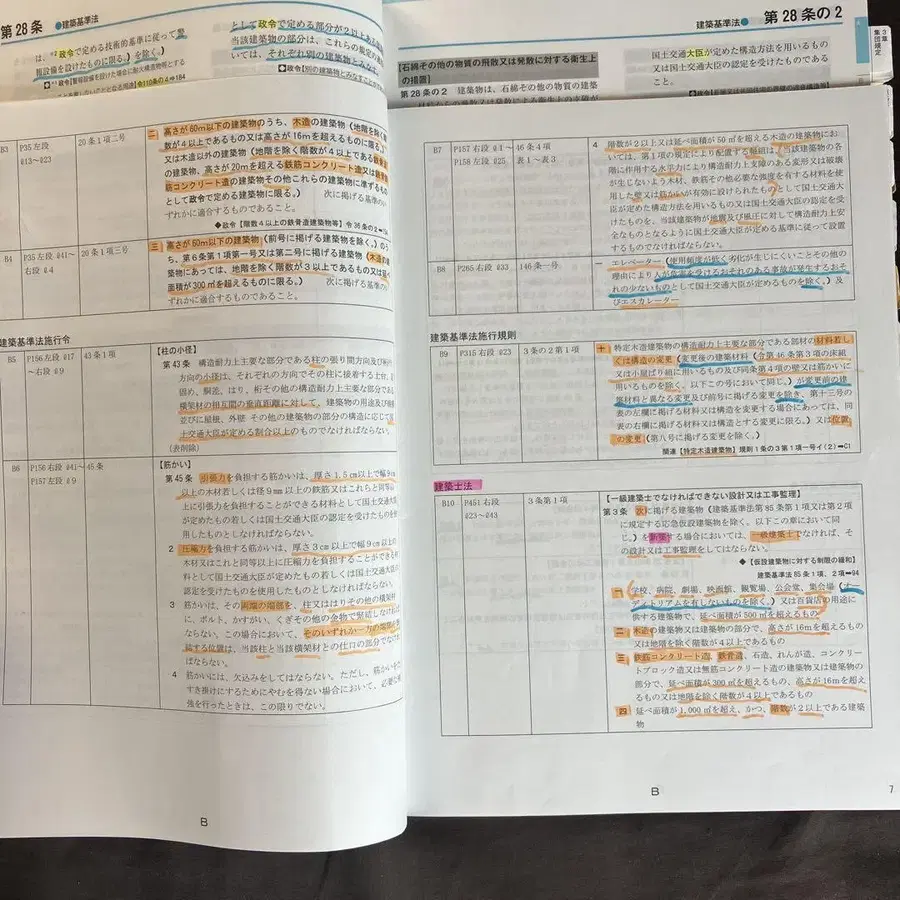 第28条 ●建築基準法
は、*²政令で定める技術的基準に従って警
報設備を設けたものに限る。)を除く。)
◆*² 政令【警報設備を設けた場合に耐火構造物等とする
ことを要しないこととなる用途】令110条の4➡184
として政令で定める部分が2以上ある
当該建築物の部分は、これらの規定の
いては、それぞれ別の建築物とみなす。
建築基準法● 第28条の2
3章
集団規定
【石綿その他の物質の飛散又は発散に対する衛生上
の措置】
第28条の2 建築物は、石綿その他の物質の建築
国土交通大臣が定めた構造方法を用いるもの
又は国土交通大臣の認定を受けたものであ
ること。
B3 P35左段 #13~#23 20条1項二号
二 高さが60m以下の建築物のうち、木造の建築物(地階を除く
数が4以上であるもの又は高さが16mを超えるものに限る。)
又は木造以外の建築物(地階を除く階数が4以上である鉄骨造
の建築物、高さが20mを超える鉄筋コンクリート造又は鉄骨
筋コンクリート造の建築物その他これらの建築物に準ずるもの
として政令で定める建築物に限る。) 次に掲げる基準の
ずれかに適合するものであること。
◆政令【階数4以上の鉄骨造建築物等】令36条の2
B4 P35左段 #41~右段 #4 20条1項三号
三 高さが60m以下の建築物(前号に掲げる建築物を除く。)のう
ち、第6条第1項第一号又は第二号に掲げる建築物(木造の
築物にあっては、地階を除く階数が3以上であるもの又は延
面積が300㎡を超えるものに限る。) 次に掲げる基準の
ずれかに適合するものであること。
建築基準法施行令
B5 P156左段 #17~右段 #9 43条1項
【柱の小径】
第43条 構造耐力上主要な部分である柱の張り間方向及び
方向の小径は、それぞれの方向でその柱に接着する土台、
固め、胴差、はり、桁その他の構造耐力上主要な部分である
横架材の相互間の垂直距離に対して、建築物の用途及び規模
並びに屋根、外壁その他の建築物の部分の構造に応じて国
土交通大臣が定める割合以上のものでなければならない。
(表削除)
B6 P156右段 #41~P157左段 #9 45条
【筋かい】
第45条 引張力を負担する筋かいは、厚さ1.5㎝以上で幅9㎝
以上の木材若しくは径9㎜以上の鉄筋又はこれらと同等以
上に引張力を負担することができる材料として国土交通大臣
が定めたもの若しくは国土交通大臣の認定を受けたものを使
用したものとしなければならない。
2 圧縮力を負担する筋かいは、厚さ3㎝以上で幅9㎝以上の
木材又はこれと同等以上に圧縮力を負担することができる材
料として国土交通大臣が定めたもの若しくは国土交通大臣の
認定を受けたものを使用したものとしなければならない。
3 筋かいは、その両端の端部を、柱又ははりその他の横架材
に、ボルト、かすがい、くぎその他の金物で緊結しなければ
ならない。この場合において、そのいずれか一方の端部を
結する位置は、当該柱と当該横架材との仕口の部分でなけ
ればならない。
4 筋かいには、欠込みをしてはならない。ただし、筋かいを
すき掛けにするためにやむを得ない場合において、必要な補
強を行ったときは、この限りでない。
B
B7 P157右段 #1~P158左段 #25 46条4項 表1~表3
4 階数が2以上又は延べ面積が50㎡を超える木造の建築物にお
いては、第1項の規定により配置する軸組は、当該建築物の各
階に作用する水平力により構造耐力上支障のある変形又は破壊
が生じないよう木材、鉄筋その他必要な強度を有する材料を使
用した壁又は筋かいが有効に設けられたものとして国土交通大
臣が定めた構造方法を用いるもの又は国土交通大臣の認定を受
けたものを、当該建築物が地震及び風圧に対して構造耐力上安
全なものとなるように国土交通大臣が定める基準に従って設置
するものでなければならない。
B8 P265右段 #33 146条一号
一 エレベーター(使用頻度が低く劣化が生じにくいことその他の
理由により人が危害を受けるおそれのある事故が発生するおそ
れの少ないものとして国土交通大臣が定めるものを除く。)及
びエスカレーター
建築基準法施行規則
B9 P315右段 #23 3条の2第1号
十 特定木造建築物の構造耐力上主要な部分である部材の材料若し
くは構造の変更(変更後の建築材料(令第46条第3項の床組
又は小屋ばり組に用いるもの及び同条第4項の壁又は筋かいに
用いるものを除く。以下この号において同じ。)が変更前の建
築材料と異なる変更及び前号に掲げる変更を除き、第十三号の
表の左欄に掲げる材料又は構造を変更する場合にあっては、同
表の右欄に掲げる材料又は構造とする変更に限る。)又は位置
の変更(第八号に掲げる変更を除く。)
関連【特定木造建築物】規則1条の3第1項一号イ(2)➡C1
建築士法
B10 P451右段 #23~#43 3条第1項
【一級建築士でなければできない設計又は工事監理】
第3条 次に掲げる建築物(建築基準法第85条第1項又は第2項
に規定する応急仮設建築物を除く。以下この章において同
じ。)を新築する場合においては、一級建築士でなければ、そ
の設計又は工事監理をしてはならない。
◆【仮設建築物に対する制限の緩和】
建築基準法85条1項、2項➡94
一 学校、病院、劇場、映画館、観覧場、公会堂、集会場(オー
ディトリアムを有しないものを除く。)又は百貨店の用途に
供する建築物で、延べ面積が500㎡を超えるもの
二 木造の建築物又は建築物の部分で、高さが16mを超えるもの
又は地階を除く階数が4以上であるもの
三 鉄筋コンクリート造、鉄骨造、石造、れん瓦造、コンクリー
トブロック造又は無筋コンクリート造の建築物又は建築物の
部分で、延べ面積が300㎡を超えるもの、高さが16mを超え
るもの又は地階を除く階数が4以上であるもの
四 延べ面積が1,000㎡を超え、かつ、階数が2以上である建築
物
B
7